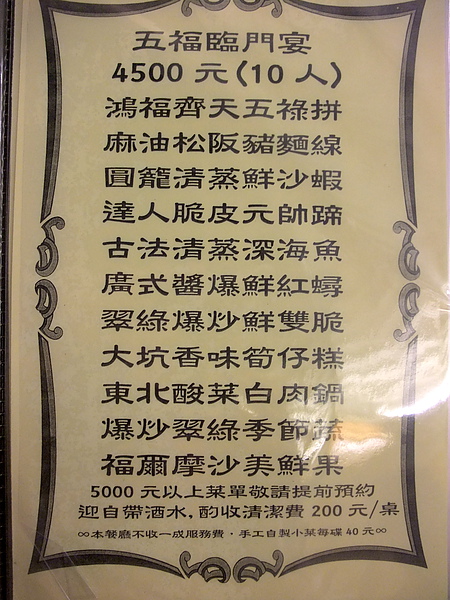 五福臨門宴
4500 元(10 人)
鴻福齊天五祿拼
麻油松阪豬麵線
圓籠清蒸鮮沙蝦
達人脆皮元帥蹄
古法清蒸深海魚
廣式醬爆鮮紅蟳
翠綠爆炒鮮雙脆
大坑香味筍仔糕
東北酸菜白肉鍋
爆炒翠綠季節蔬
福爾摩沙美鮮果
5000 元以上菜單敬請提前預約
迎自帶酒水,酌收清潔費 200 元/桌
∞本餐廳不收一成服務費‧手工自製小菜每碟 40 元∞